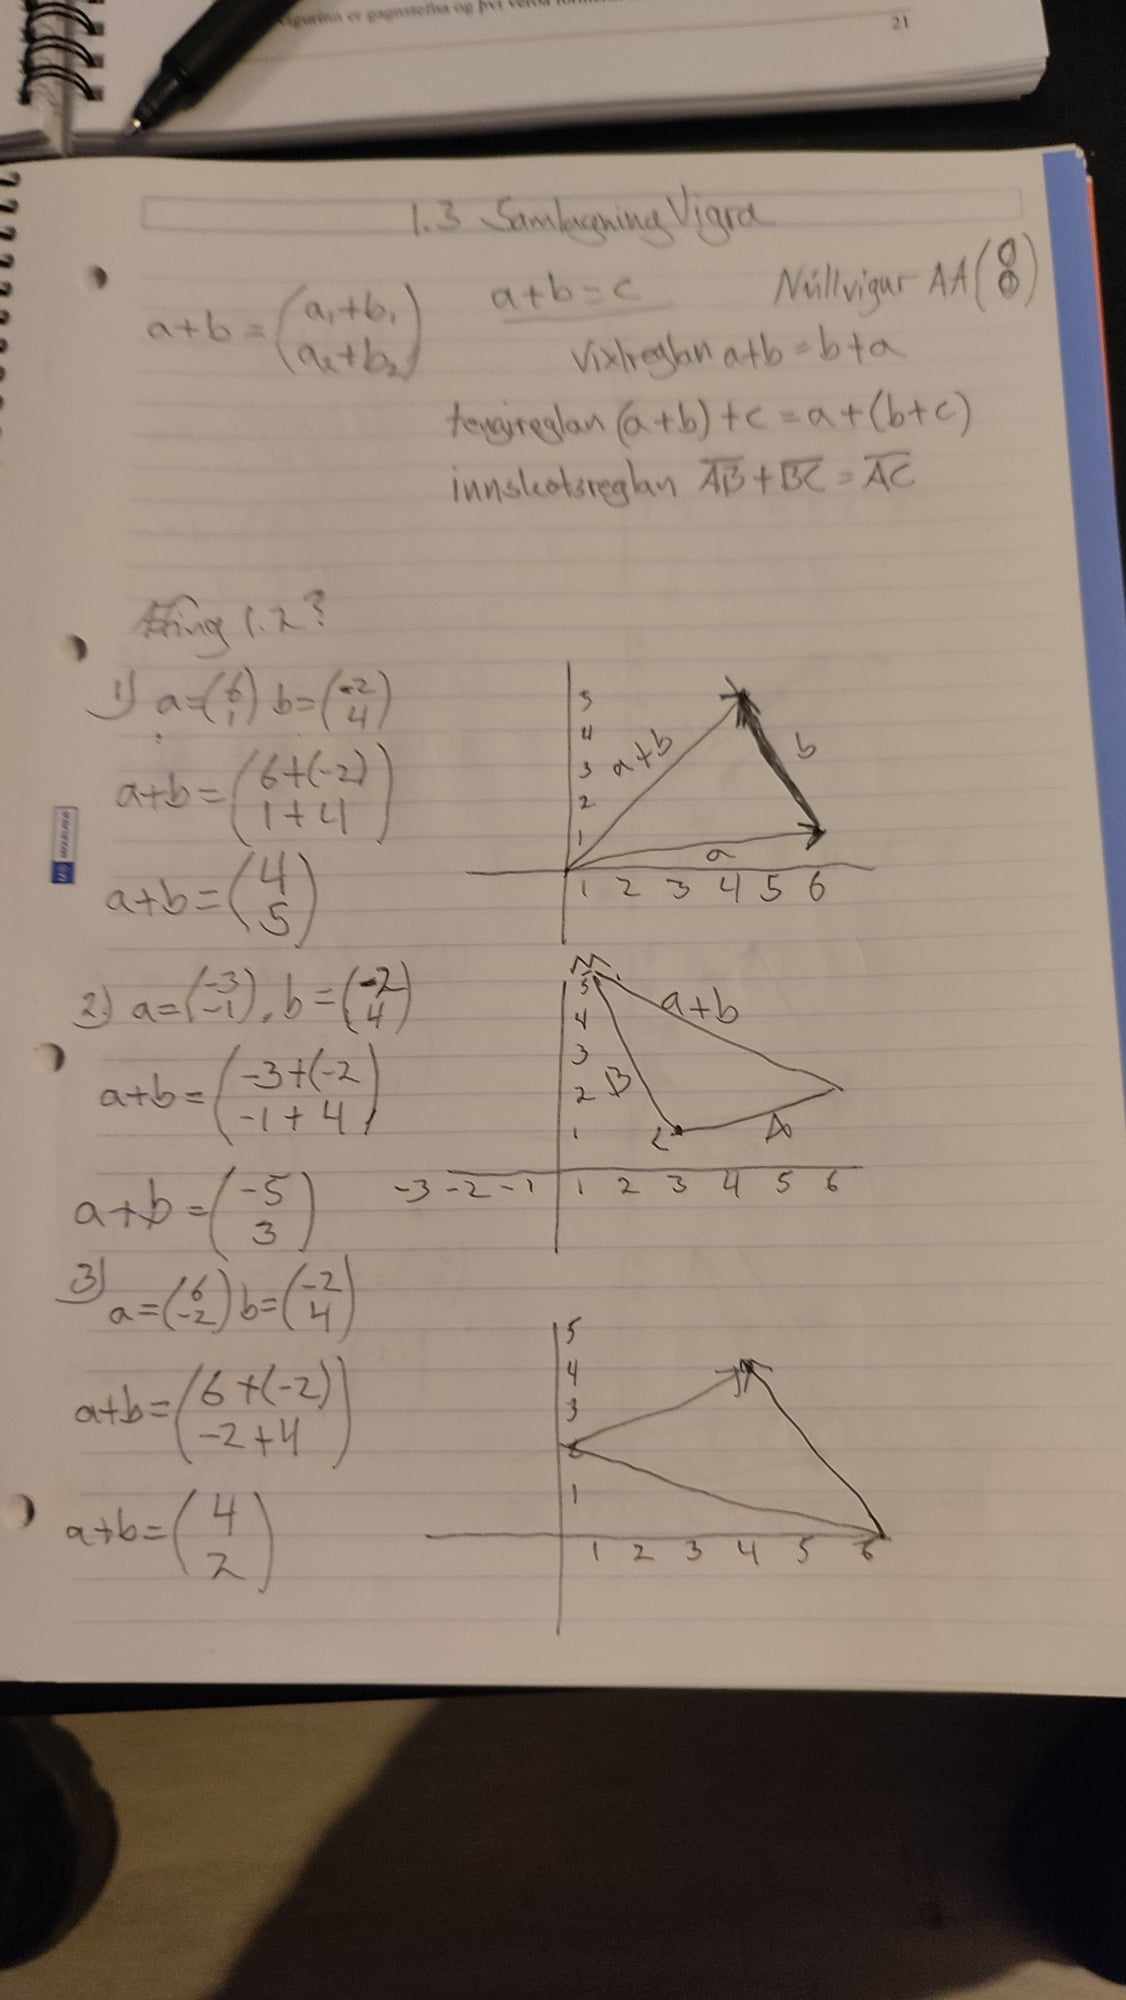 vigurinn er gagnstefna og því verða
21
1.3 Samlagning Vigra
a+b = (a₁+b₁
a₂+b₂)
a+b=c
Núllvigur AA(0
0)
Víxlreglan a+b=b+a
tengireglan (a+b)+c=a+(b+c)
innskotsreglan AB+BC=AC
Æfing 1.2?
1) a=(6
1) b=(-2
4)
a+b=(6+(-2)
1+4)
a+b=(4
5)
5
4
3
2
1
a+b
b
a
1 2 3 4 5 6
2) a=(-3
-1), b=(-2
4)
a+b=(-3+(-2
-1+4)
a+b=(-5
3)
5
4
3
2
1
a+b
B
A
-3 -2 -1 1 2 3 4 5 6
3) a=(6
-2) b=(-2
4)
a+b=(6+(-2)
-2+4)
a+b=(4
2)
5
4
3
1
1 2 3 4 5 6